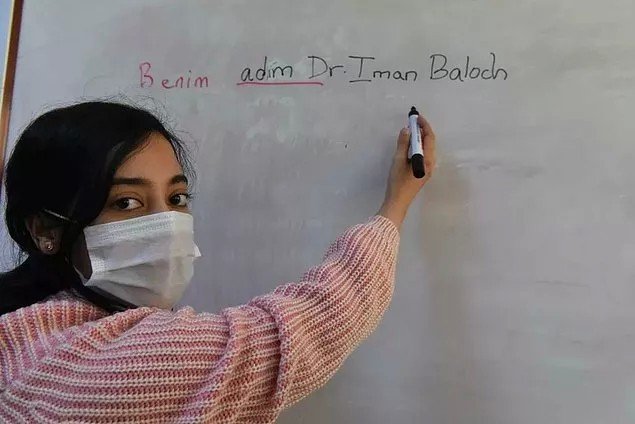 Benim adim Dr. Iman Baloch